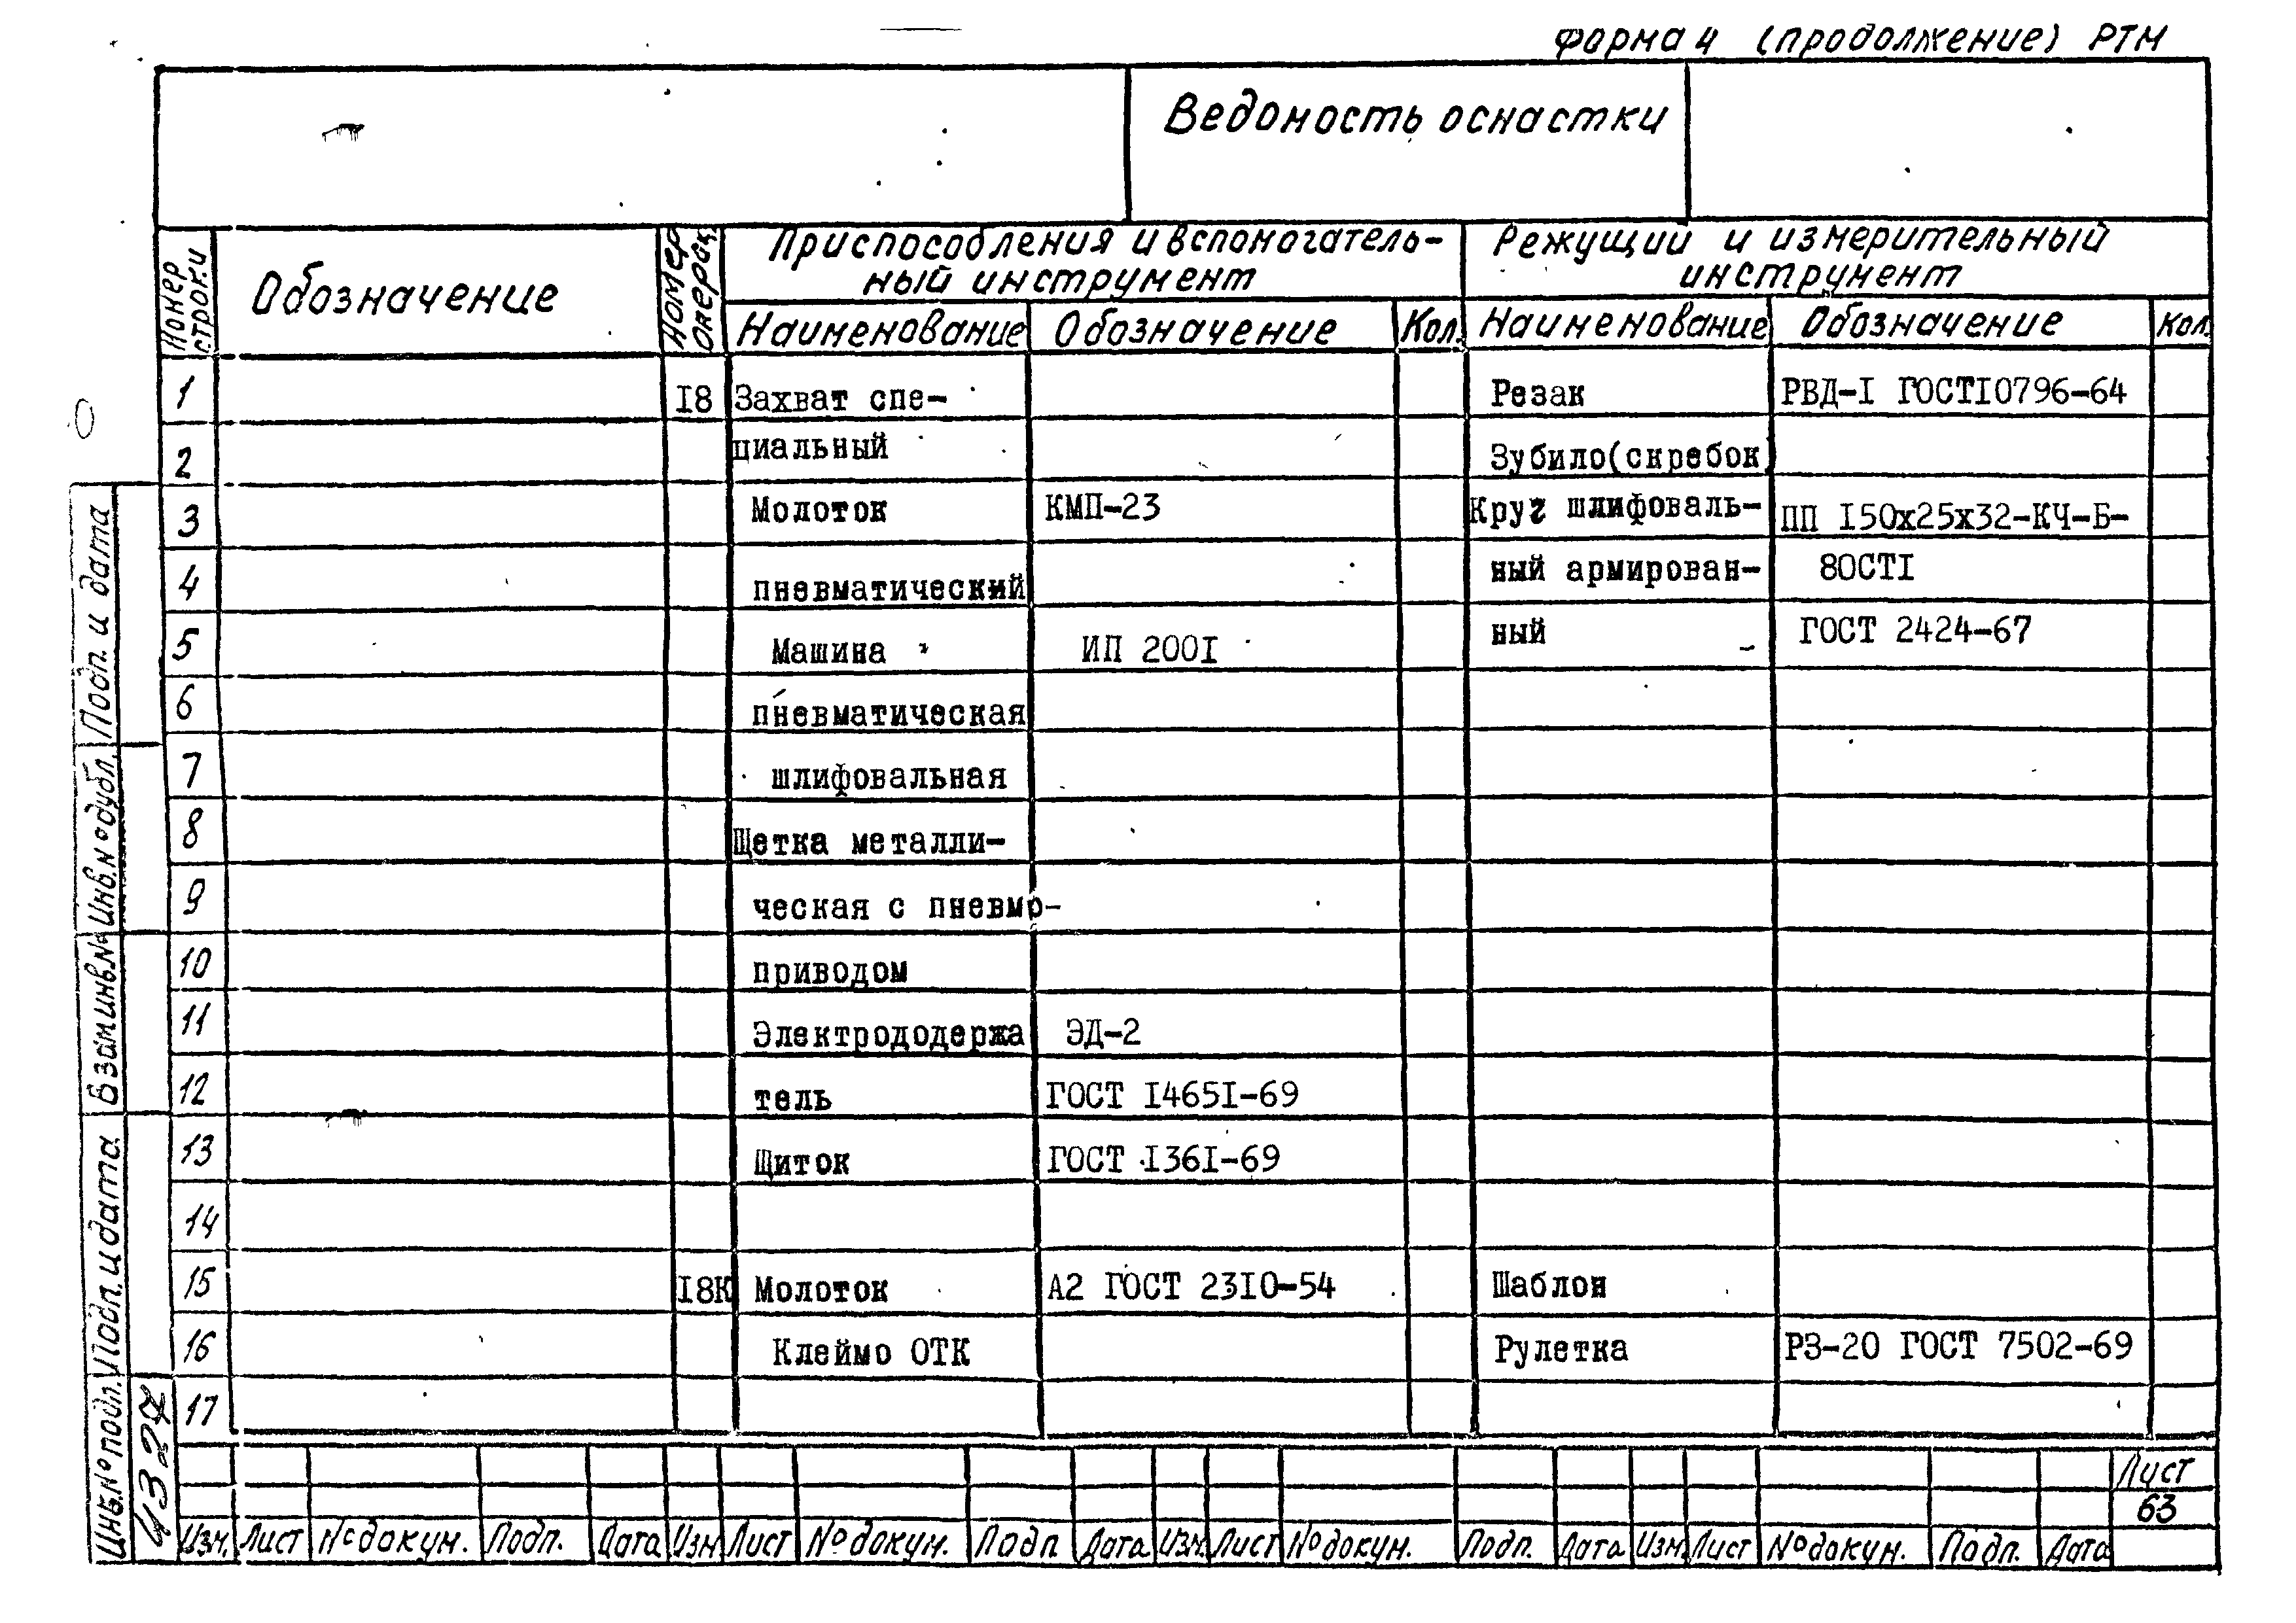 Форма 4 (продолжение) РТМ
Ведомость оснастки
Номер строки
Обозначение
Номер операц.
Приспособления и вспомогатель-
ный инструмент
Режущий и измерительный
инструмент
Наименование Обозначение Кол. Наименование Обозначение Кол.
1 18 Захват спе- Резак РВД-1 ГОСТ10796-64
2 циальный Зубило(скребок)
3 Молоток КМП-23 Круг шлифоваль- ПП 150х25х32-КЧ-Б-
4 пневматический ный армирован- 80СТ1
5 Машина ИП 2001 ный ГОСТ 2424-67
6 пневматическая
7 шлифовальная
8 Щетка металли-
9 ческая с пневмо-
10 приводом
11 Электрододержа ЭД-2
12 тель ГОСТ 14651-69
13 Щиток ГОСТ 1361-69
14
15 18К Молоток А2 ГОСТ 2310-54 Шаблон
16 Клеймо ОТК Рулетка РЗ-20 ГОСТ 7502-69
17
Лист
63
Изм. Лист № докум. Подп. Дата Изм Лист № докум. Подп Дата Изм. Лист № докум. Подп. Дата Изм. Лист № докум. Подп. Дата
Подп. и дата
Инв. № дубл.
Взам инв. №
Подп. и дата
Инв. № подп.